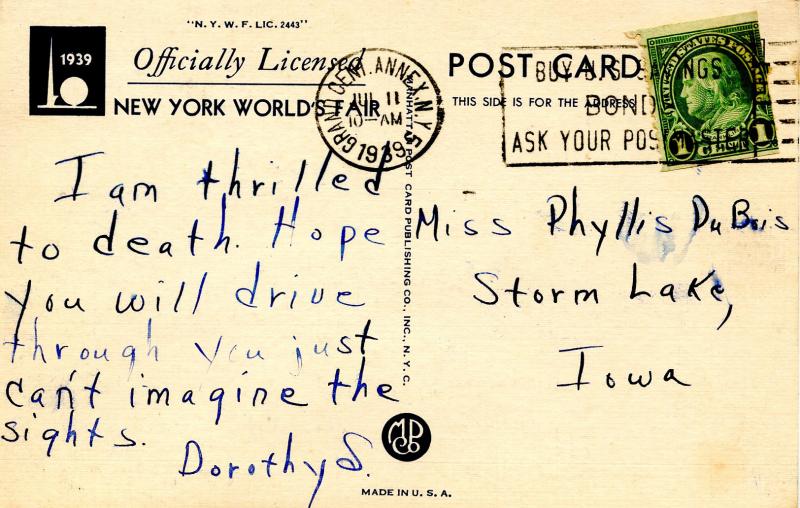 "N. Y. W. F. LIC. 2443"
1939
Officially Licensed
NEW YORK WORLD'S FAIR
I am thrilled
to death. Hope
you will drive
through you just
can't imagine the
sights.
Dorothy S.
GRAND CENT. ANNEX N.Y.
JUL 11
10 AM
1939
MANHATTAN POST CARD PUBLISHING CO., INC., N. Y. C.
MPCo
MADE IN U. S. A.
POST CARD
THIS SIDE IS FOR THE ADDRESS
BUY U.S. SAVINGS
BONDS
ASK YOUR POSTMASTER
UNITED STATES POSTAGE
1 1
Miss Phyllis DuBois
Storm Lake,
Iowa